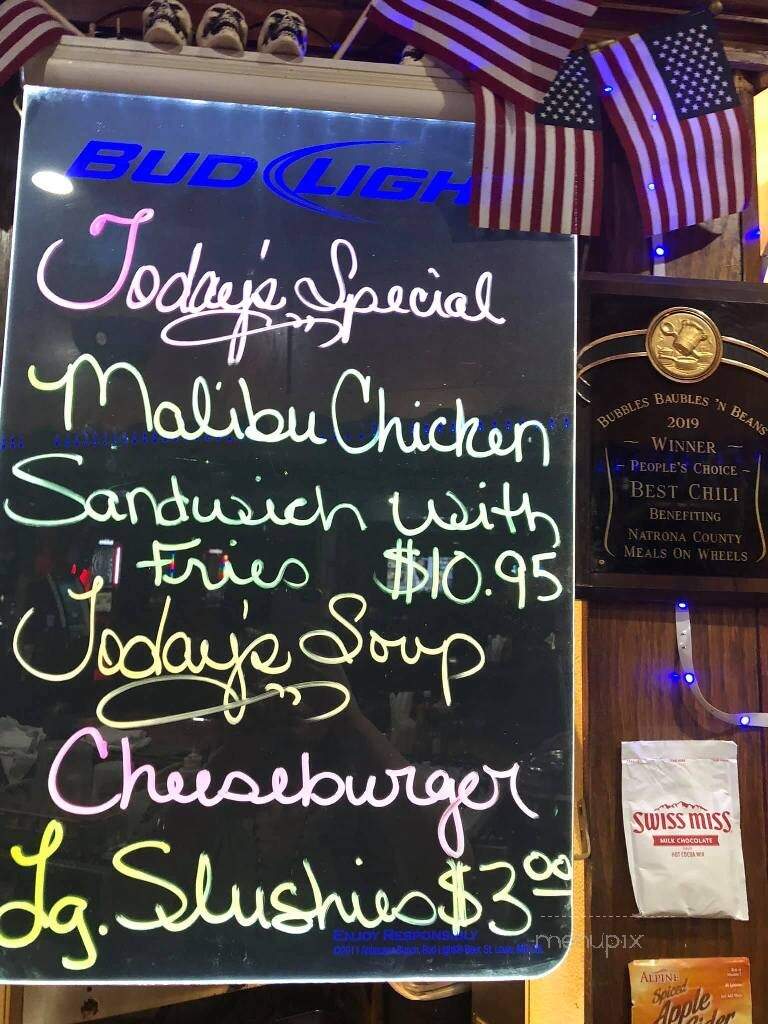 BUD LIGH
Today's Special
Malibu Chicken
Sandwich with
Fries $10.95
Today's Soup
Cheeseburger
Lg. Slushies $3.00
ENJOY RESPONSIBLY
BUBBLES BAUBLES 'N BEANS
2019
~ WINNER ~
PEOPLE'S CHOICE
BEST CHILI
BENEFITING
NATRONA COUNTY
MEALS ON WHEELS
SWISS MISS
MILK CHOCOLATE
HOT COCOA MIX
menupix
ALPINE
Spiced
Apple
Cider